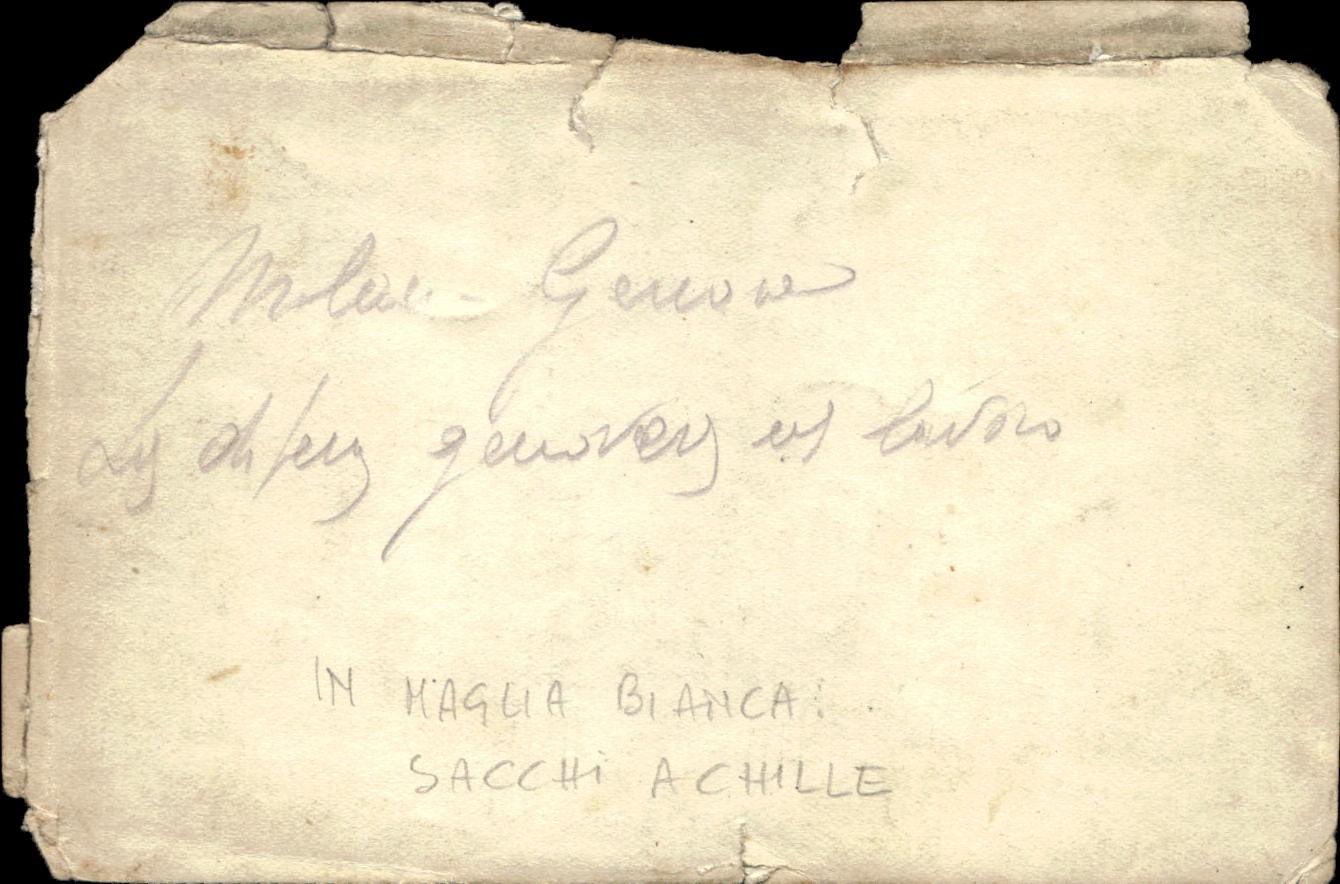 Milan - Genova
La difesa genovese al lavoro
IN MAGLIA BIANCA:
SACCHI ACHILLE